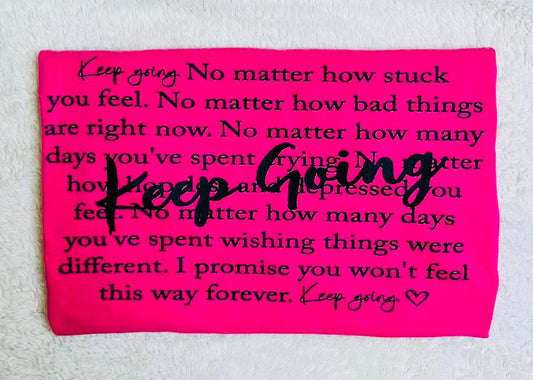 Keep going No matter how stuck
you feel. No matter how bad things
are right now. No matter how many
days you've spent crying. No matter
how hopeless and depressed you
feel. No matter how many days
you've spent wishing things were
different. I promise you won't feel
this way forever. Keep going ♡
Keep Going